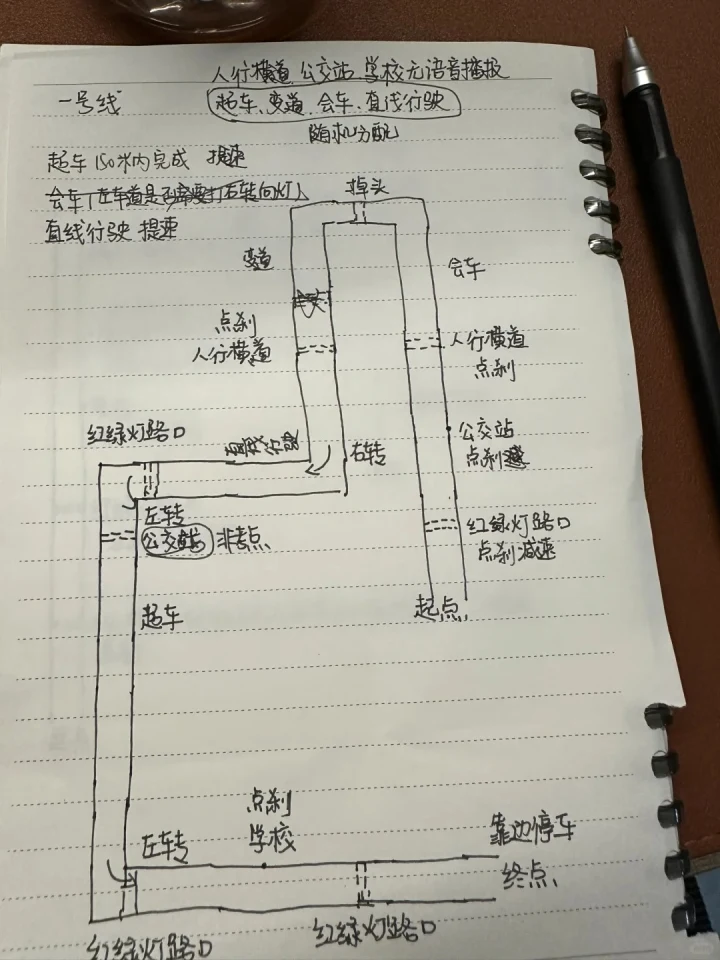 人行横道 公交站 学校无语音播报
一号线
超车、变道、会车、直线行驶
随机分配
超车 150米内完成 提速
会车(左车道是否需要打右转向灯)
直线行驶 提速
掉头
变道
会车
点刹
人行横道
人行横道
点刹
红绿灯路口
右转
公交站
点刹
左转
公交站 非考点
红绿灯路口
点刹减速
超车
起点
点刹
学校
左转
靠边停车
终点
红绿灯路口
红绿灯路口